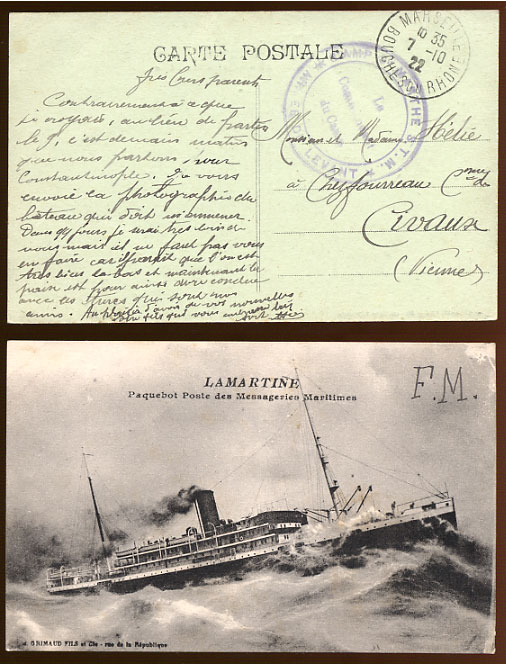 CARTE POSTALE
MARSEILLE
10 35
7 -10
22
BOUCHES DU RHONE
Le
du Camp
LEVANT
très chers parents
Contrairement à ce que
je croyais, au lieu de partir
le 9, c'est demain matin
que nous partons, pour
Constantinople. Je vous
envoie la photographie du
bateau qui doit m'emmener.
Dans 4 jours je serai très loin de
vous mais il ne faut pas vous
en faire car il paraît que l'on est
très bien là bas et maintenant la
paix est pour ainsi dire conclue
avec les Turcs qui sont nos
amis. Au plaisir d'avoir de vos nouvelles
votre fils que vous embrasse bien
fort
Monsieur et Madame Hélie
à Cheyssourreau Cne de
Civaux
(Vienne)
LAMARTINE
Paquebot Poste des Messageries Maritimes
F.M.
GRIMAUD FILS et Cie - rue de la République